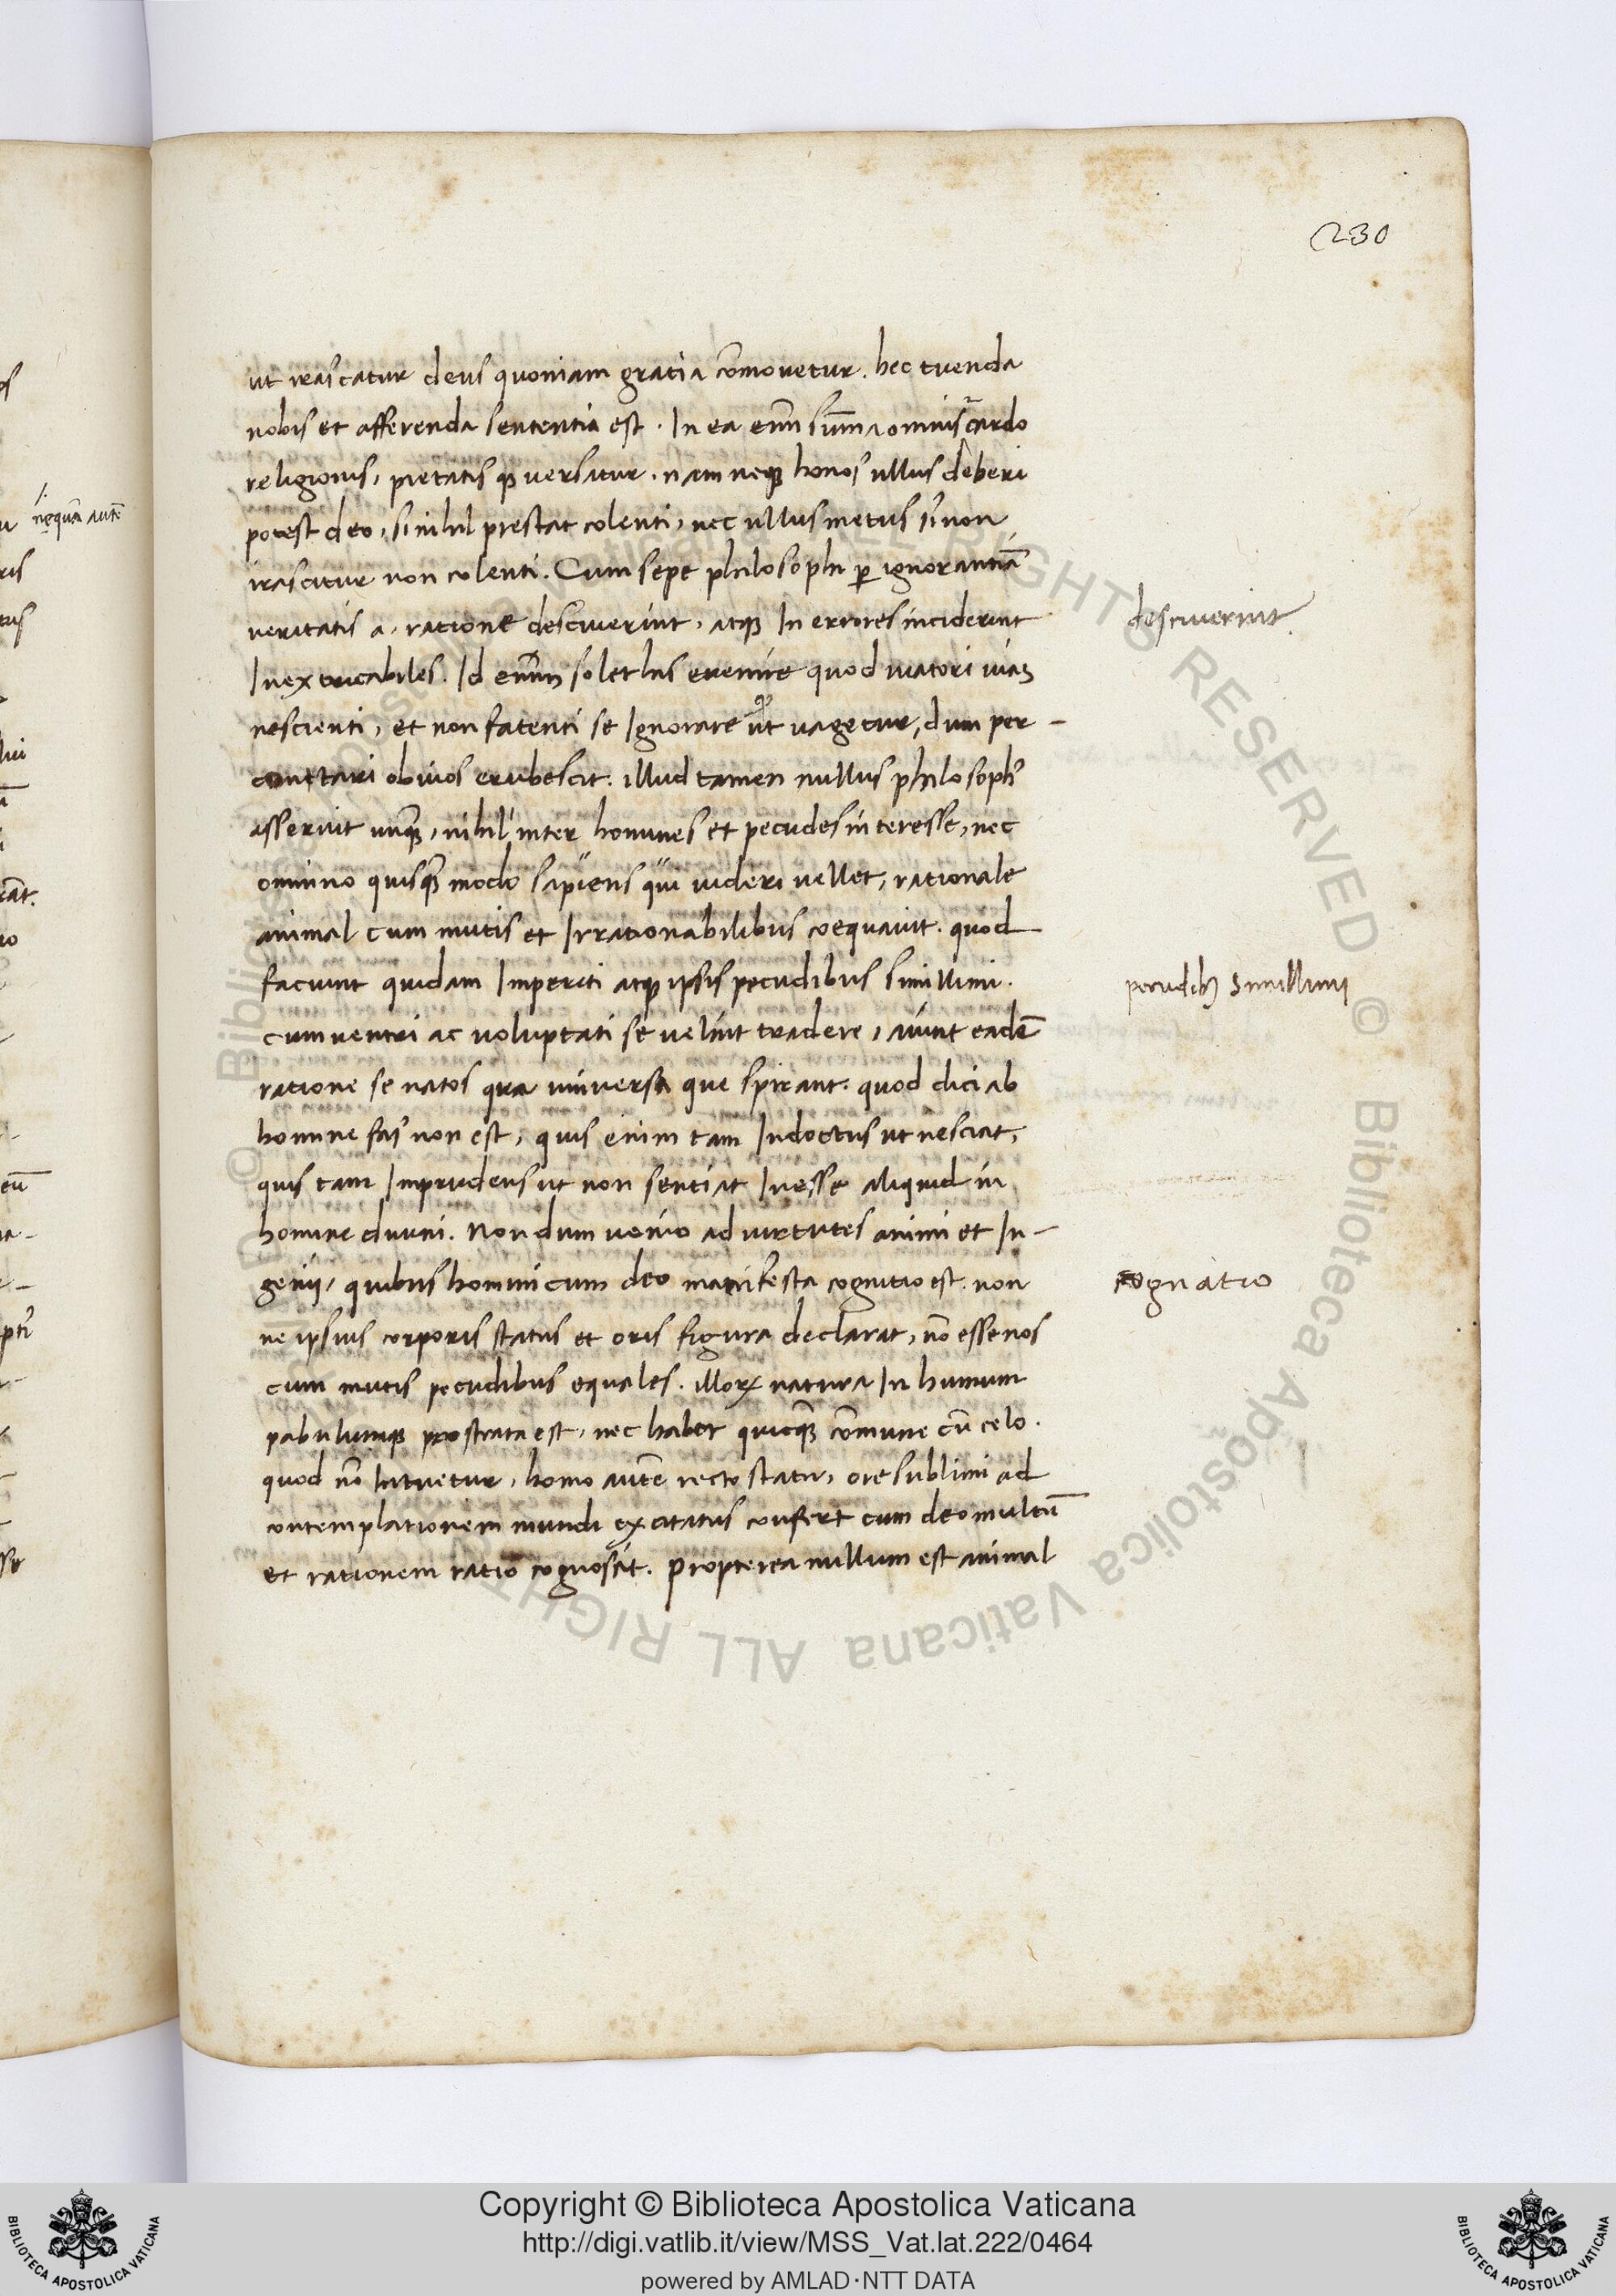 230
ut irascatur deus quoniam gratia com̃ouetur. hec tuenda
nobis et afferenda sententia est. In ea eniz̃ sum̃a omnis cardo
religionis, pietatisqꝫ uersatur. nam neqꝫ honos ullus deberi
potest deo, si nihil prestat colenti, nec ullus metus si non
irascitur non colenti. Cum sepe philosophi ꝑ ignorantiã
ueritatis a, ratione desciuerint, atqꝫ In errores inciderint
Inextricabiles. Id enim solet his euenire quod uiatori uiaꝫ
nescienti, et non fatenti se Ignorare ut uagetur, dum per-
conttari obuios erubescit. illud tamen nullus philosophꝰ
asseruit unqꝫ̃, nihil inter homines et pecudes interesse, nec
omnino quisqꝫ̃ modo sapiens qui uideri uellet, rationale
animal cum mutis et Irrationabilibus coequauit. quod
faciunt quidam Imperiti atqꝫ ipsis pecudibus simillimi.
cum uentri ac uoluptati se uelint tradere, aiunt eadẽ
ratione se natos qua uniuersa que spirant. quod dici ab
homine fas non est, quis enim tam Indoctus ut nesciat,
quis tam Imprudens ut non sentiat Inesse aliquid in
homine diuini. Nondum uenio ad uirtutes animi et In-
genij, quibus homini cum deo manifesta cognitio est. non
ne ipsius corporis status et oris figura declarat, nõ esse nos
cum mutis pecudibus equales. illoꝝ natura In humum
pabulumqꝫ prostrata est, nec habet quicqꝫ̃ com̃une cũ celo.
quod nõ Intuetur, homo autẽ recto statu, ore sublimi ad
contemplationem mundi excitatus confert cum deo multũ
et rationem ratio cognoscit. Propterea nullum est animal
desciuerint
pecudibꝫ simillimi
cognatio
nequã autẽ
Copyright © Biblioteca Apostolica Vaticana
http://digi.vatlib.it/view/MSS_Vat.lat.222/0464
powered by AMLAD·NTT DATA
BIBLIOTECA APOSTOLICA VATICANA
BIBLIOTECA APOSTOLICA VATICANA
© Biblioteca Apostolica Vaticana ALL RIGHTS RESERVED